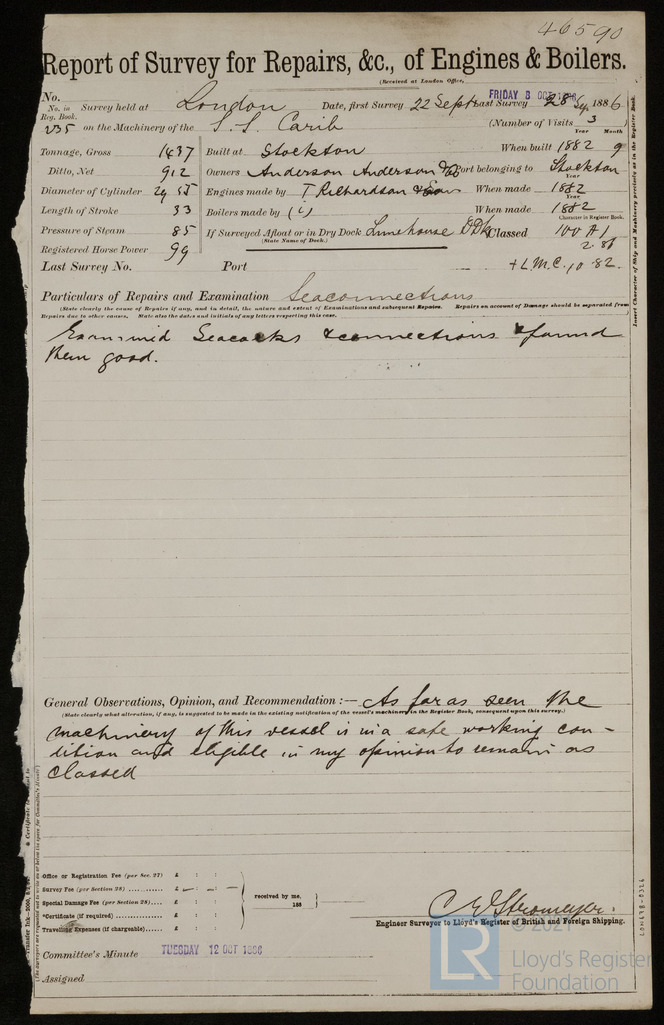 46590
Report of Survey for Repairs, &c., of Engines & Boilers.
(Received at London Office,
FRIDAY 8 OCT 1886
No.
No. in Reg. Book. Survey held at London Date, first Survey 22 Sept Last Survey 28 Sep. 1886
235 on the Machinery of the S. S. Carib (Number of Visits 3
Tonnage, Gross 1437 Built at Stockton When built 1882 9
Year Month
Ditto, Net 912 Owners Anderson Anderson & Co Port belonging to Stockton
Diameter of Cylinder 29 55 Engines made by T Richardson & Sons When made 1882
Year
Length of Stroke 33 Boilers made by (i) When made 1882
Year
Pressure of Steam 85 If Surveyed Afloat or in Dry Dock Limehouse D Dk Classed 100 A 1
(State Name of Dock.)
Character in Register Book.
Registered Horse Power 99 2.86
Last Survey No. Port + L.M.C. 10.82.
Particulars of Repairs and Examination Seaconnections
(State clearly the cause of Repairs if any, and in detail, the nature and extent of Examinations and subsequent Repairs. Repairs on account of Damage should be separated from
Repairs due to other causes. State also the dates and initials of any letters respecting this case.
Examined Seacocks & connections & found
them good.
General Observations, Opinion, and Recommendation :— As far as seen the
(State clearly what alteration, if any, is suggested to be made in the existing notification of the vessel's machinery in the Register Book, consequent upon this survey.)
machinery of this vessel is in a safe working con-
dition and eligible in my opinion to remain as
classed
Office or Registration Fee (per Sec. 27) £ : :
Survey Fee (per Section 28) £ — : — : —
Special Damage Fee (per Section 28) £ : :
*Certificate (if required) £ : :
Travelling Expenses (if chargeable) £ : :
received by me,
188
C E Stromeyer.
Engineer Surveyor to Lloyd's Register of British and Foreign Shipping.
Committee's Minute TUESDAY 12 OCT 1886
Assigned
Insert Character of Ship and Machinery precisely as in the Register Book.
LON678-0326
© 2021
LR
Lloyd's Register
Foundation